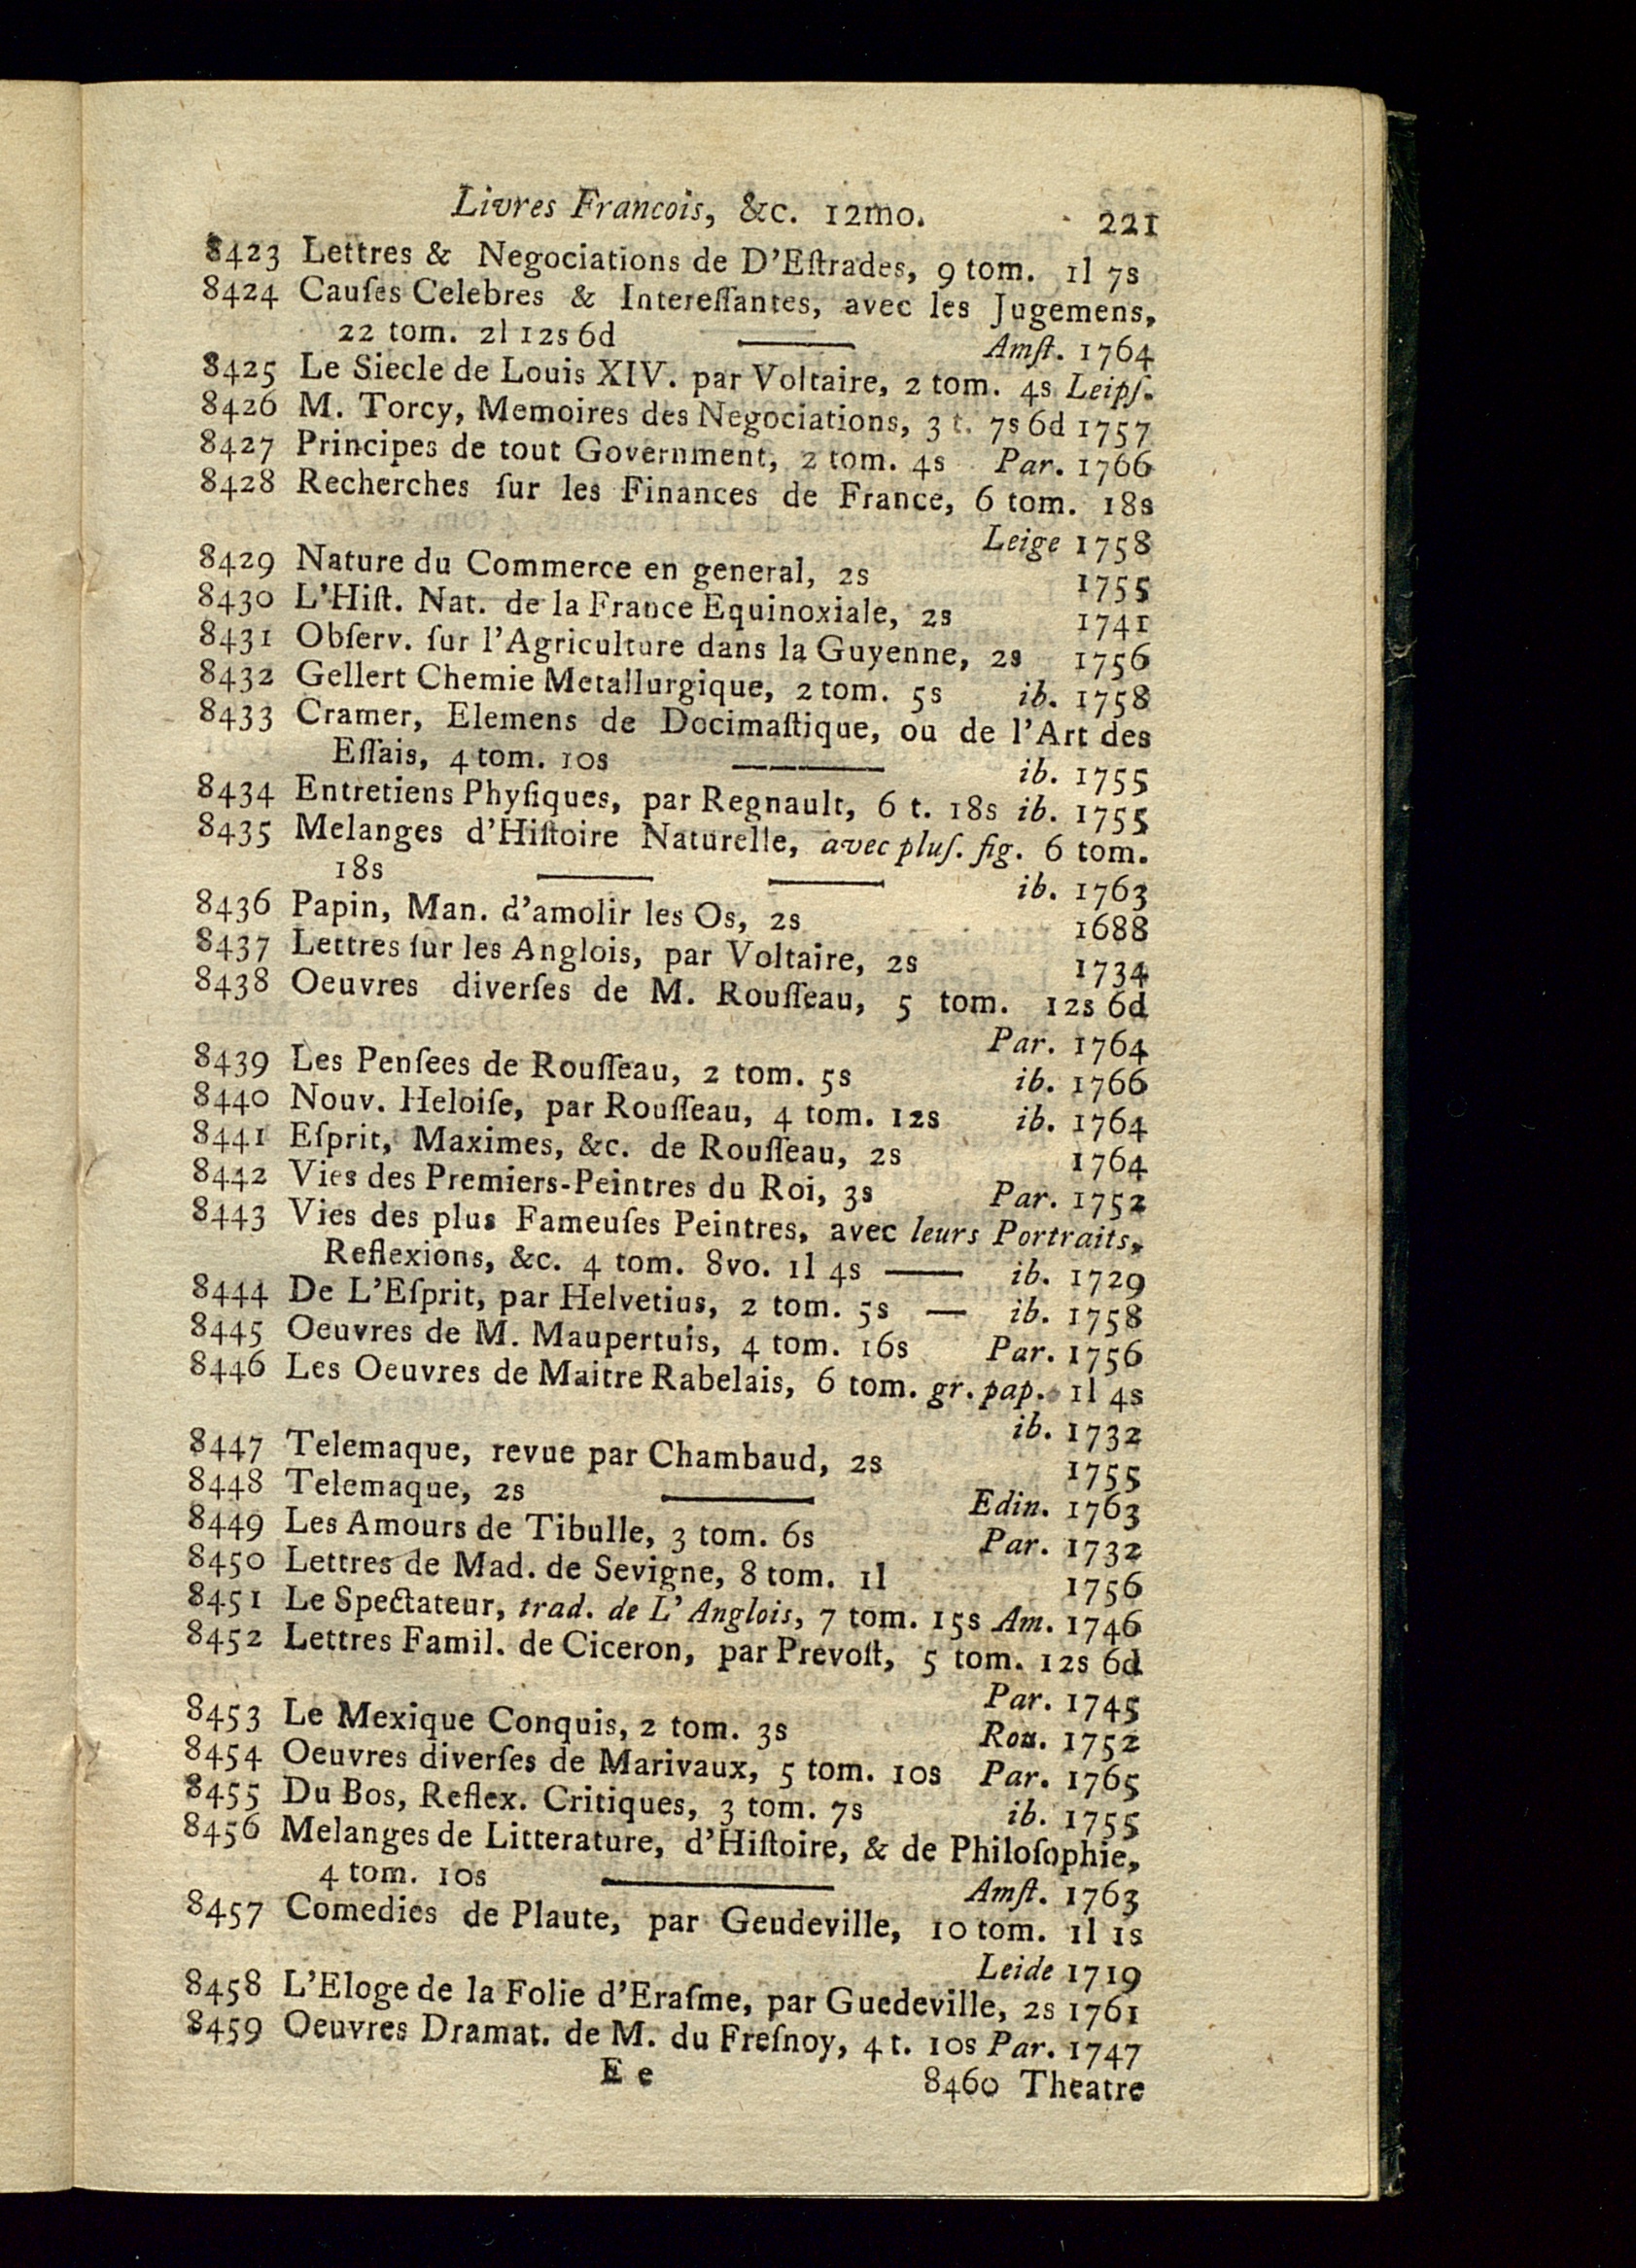 Livres Francois, &c. 12mo. 221
8423 Lettres & Negociations de D'Eſtrades, 9 tom. 1l 7s
8424 Cauſes Celebres & Intereſſantes, avec les Jugemens,
22 tom. 2l 12s 6d —— Amſt. 1764
8425 Le Siecle de Louis XIV. par Voltaire, 2 tom. 4s Leipſ.
8426 M. Torcy, Memoires des Negociations, 3 t. 7s 6d 1757
8427 Principes de tout Government, 2 tom. 4s Par. 1766
8428 Recherches ſur les Finances de France, 6 tom. 18s
Leige 1758
8429 Nature du Commerce en general, 2s 1755
8430 L'Hiſt. Nat. de la France Equinoxiale, 2s 1741
8431 Obſerv. ſur l'Agriculture dans la Guyenne, 2s 1756
8432 Gellert Chemie Metallurgique, 2 tom. 5s ib. 1758
8433 Cramer, Elemens de Docimaſtique, ou de l'Art des
Eſſais, 4 tom. 10s —— ib. 1755
8434 Entretiens Phyſiques, par Regnault, 6 t. 18s ib. 1755
8435 Melanges d'Hiſtoire Naturelle, avec pluſ. fig. 6 tom.
18s —— —— ib. 1763
8436 Papin, Man. d'amolir les Os, 2s 1688
8437 Lettres ſur les Anglois, par Voltaire, 2s 1734
8438 Oeuvres diverſes de M. Rouſſeau, 5 tom. 12s 6d
Par. 1764
8439 Les Penſees de Rouſſeau, 2 tom. 5s ib. 1766
8440 Nouv. Heloiſe, par Rouſſeau, 4 tom. 12s ib. 1764
8441 Eſprit, Maximes, &c. de Rouſſeau, 2s 1764
8442 Vies des Premiers-Peintres du Roi, 3s Par. 1752
8443 Vies des plus Fameuſes Peintres, avec leurs Portraits,
Reflexions, &c. 4 tom. 8vo. 1l 4s —— ib. 1729
8444 De L'Eſprit, par Helvetius, 2 tom. 5s — ib. 1758
8445 Oeuvres de M. Maupertuis, 4 tom. 16s Par. 1756
8446 Les Oeuvres de Maitre Rabelais, 6 tom. gr. pap. 1l 4s
ib. 1732
8447 Telemaque, revue par Chambaud, 2s 1755
8448 Telemaque, 2s —— Edin. 1763
8449 Les Amours de Tibulle, 3 tom. 6s Par. 1732
8450 Lettres de Mad. de Sevigne, 8 tom. 1l 1756
8451 Le Spectateur, trad. de L'Anglois, 7 tom. 15s Am. 1746
8452 Lettres Famil. de Ciceron, par Prevoſt, 5 tom. 12s 6d
Par. 1745
8453 Le Mexique Conquis, 2 tom. 3s Rou. 1752
8454 Oeuvres diverſes de Marivaux, 5 tom. 10s Par. 1765
8455 Du Bos, Reflex. Critiques, 3 tom. 7s ib. 1755
8456 Melanges de Litterature, d'Hiſtoire, & de Philoſophie,
4 tom. 10s —— Amſt. 1763
8457 Comedies de Plaute, par Geudeville, 10 tom. 1l 1s
Leide 1719
8458 L'Eloge de la Folie d'Eraſme, par Guedeville, 2s 1761
8459 Oeuvres Dramat. de M. du Freſnoy, 4 t. 10s Par. 1747
E e 8460 Theatre